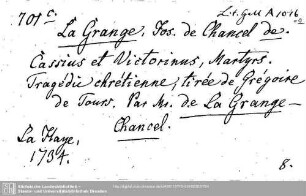 701c.
Lit. Gall A 1016
La Grange. Jos. de Chancel de.
Cassius et Victorinus, Martyrs.
Tragédie chrétienne, tirée de Grégoire
de Tours. Par Mr. de La Grange-
Chancel.
La Haye,
1734.
8.